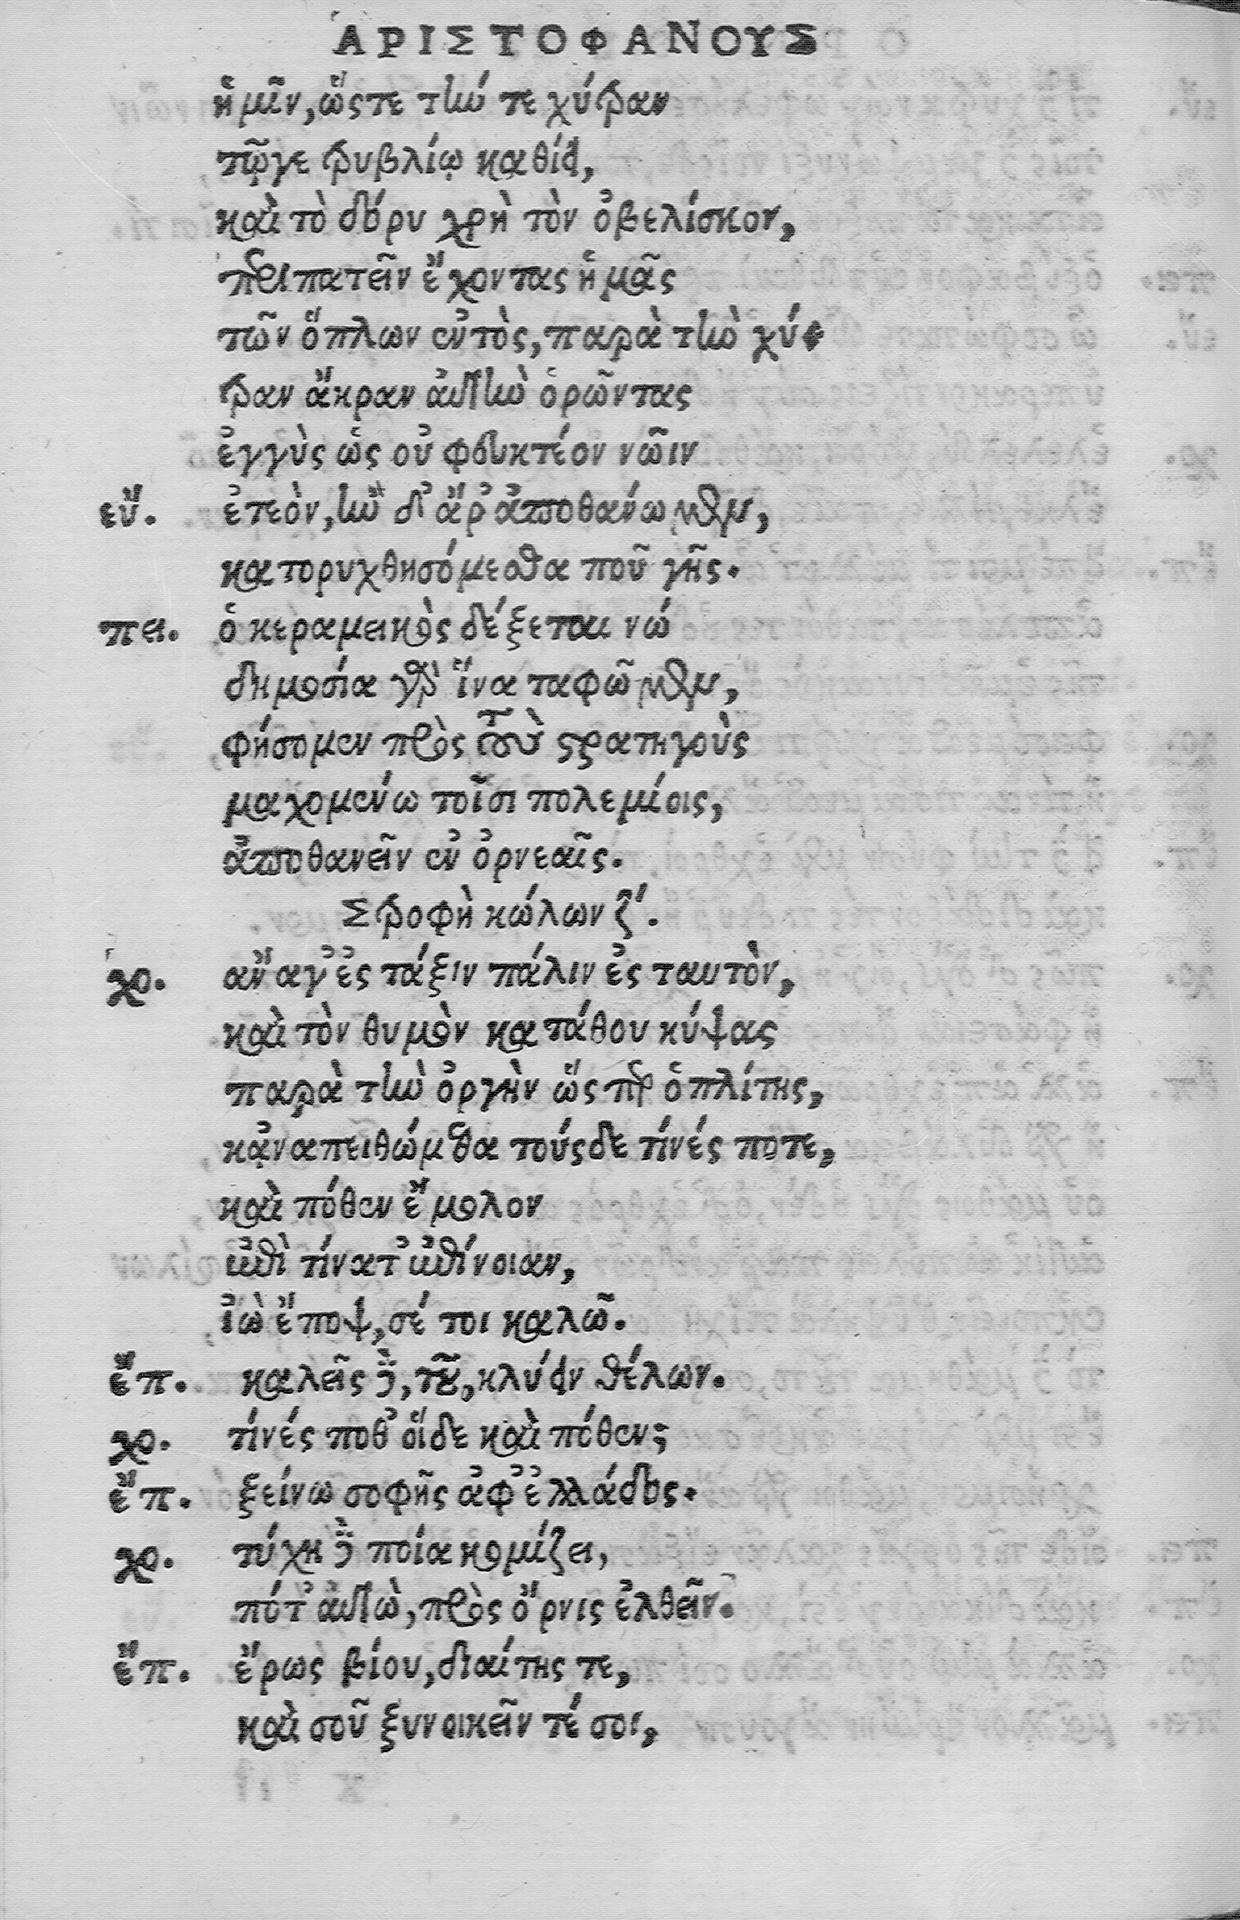 ΑΡΙΣΤΟΦΑΝΟΥΣ
ἡμῖν, ὥστε τὴν τε χύτραν
τῷγε τρυβλίῳ καθίει,
καὶ τὸ δόρυ χρὴ τὸν ὀβελίσκον,
περιπατεῖν ἔχοντας ἡμᾶς
τῶν ὅπλων ἐντὸς, παρὰ τὴν χύ-
τραν ἄκραν αὐτὴν ὁρῶντας
ἐγγὺς ὡς οὐ φευκτέον νῶιν
εὔ. ἐτεὸν, ἢν δ᾽ ἄρ᾽ ἀποθάνωμεν,
κατορυχθησόμεσθα ποῦ γῆς.
πει. ὁ κεραμεικὸς δέξεται νώ
δημοσία γὰρ ἵνα ταφῶμεν,
φήσομεν πρὸς τοὺς στρατηγοὺς
μαχομένω τοῖσι πολεμίοις,
ἀποθανεῖν ἐν ὀρνεαῖς.
Στροφὴ κώλων ζʹ.
χο. ἄναγ᾽ ἐς τάξιν πάλιν ἐς ταυτὸν,
καὶ τὸν θυμὸν κατάθου κύψας
παρὰ τὴν ὀργὴν ὥσπερ ὁπλίτης,
κᾀναπειθώμεθα τούςδε τίνές ποτε,
καὶ πόθεν ἔμολον
ἐπὶ τίνα τ᾽ ἐπίνοιαν,
ἰὼ ἔποψ, σέ τοι καλῶ.
ἔπ. καλεῖς δὲ, τοῦ, κλύειν θέλων.
χο. τίνές ποθ᾽ οἵδε καὶ πόθεν;
ἔπ. ξείνω σοφῆς ἀφ᾽ ἑλλάδος.
χο. τύχη δὲ ποία κομίζει,
πότ᾽ αὐτὼ, πρὸς ὄρνις ἐλθεῖν.
ἔπ. ἔρως βίου, διαίτης τε,
καὶ σοῦ ξυνοικεῖν τέ σοι,